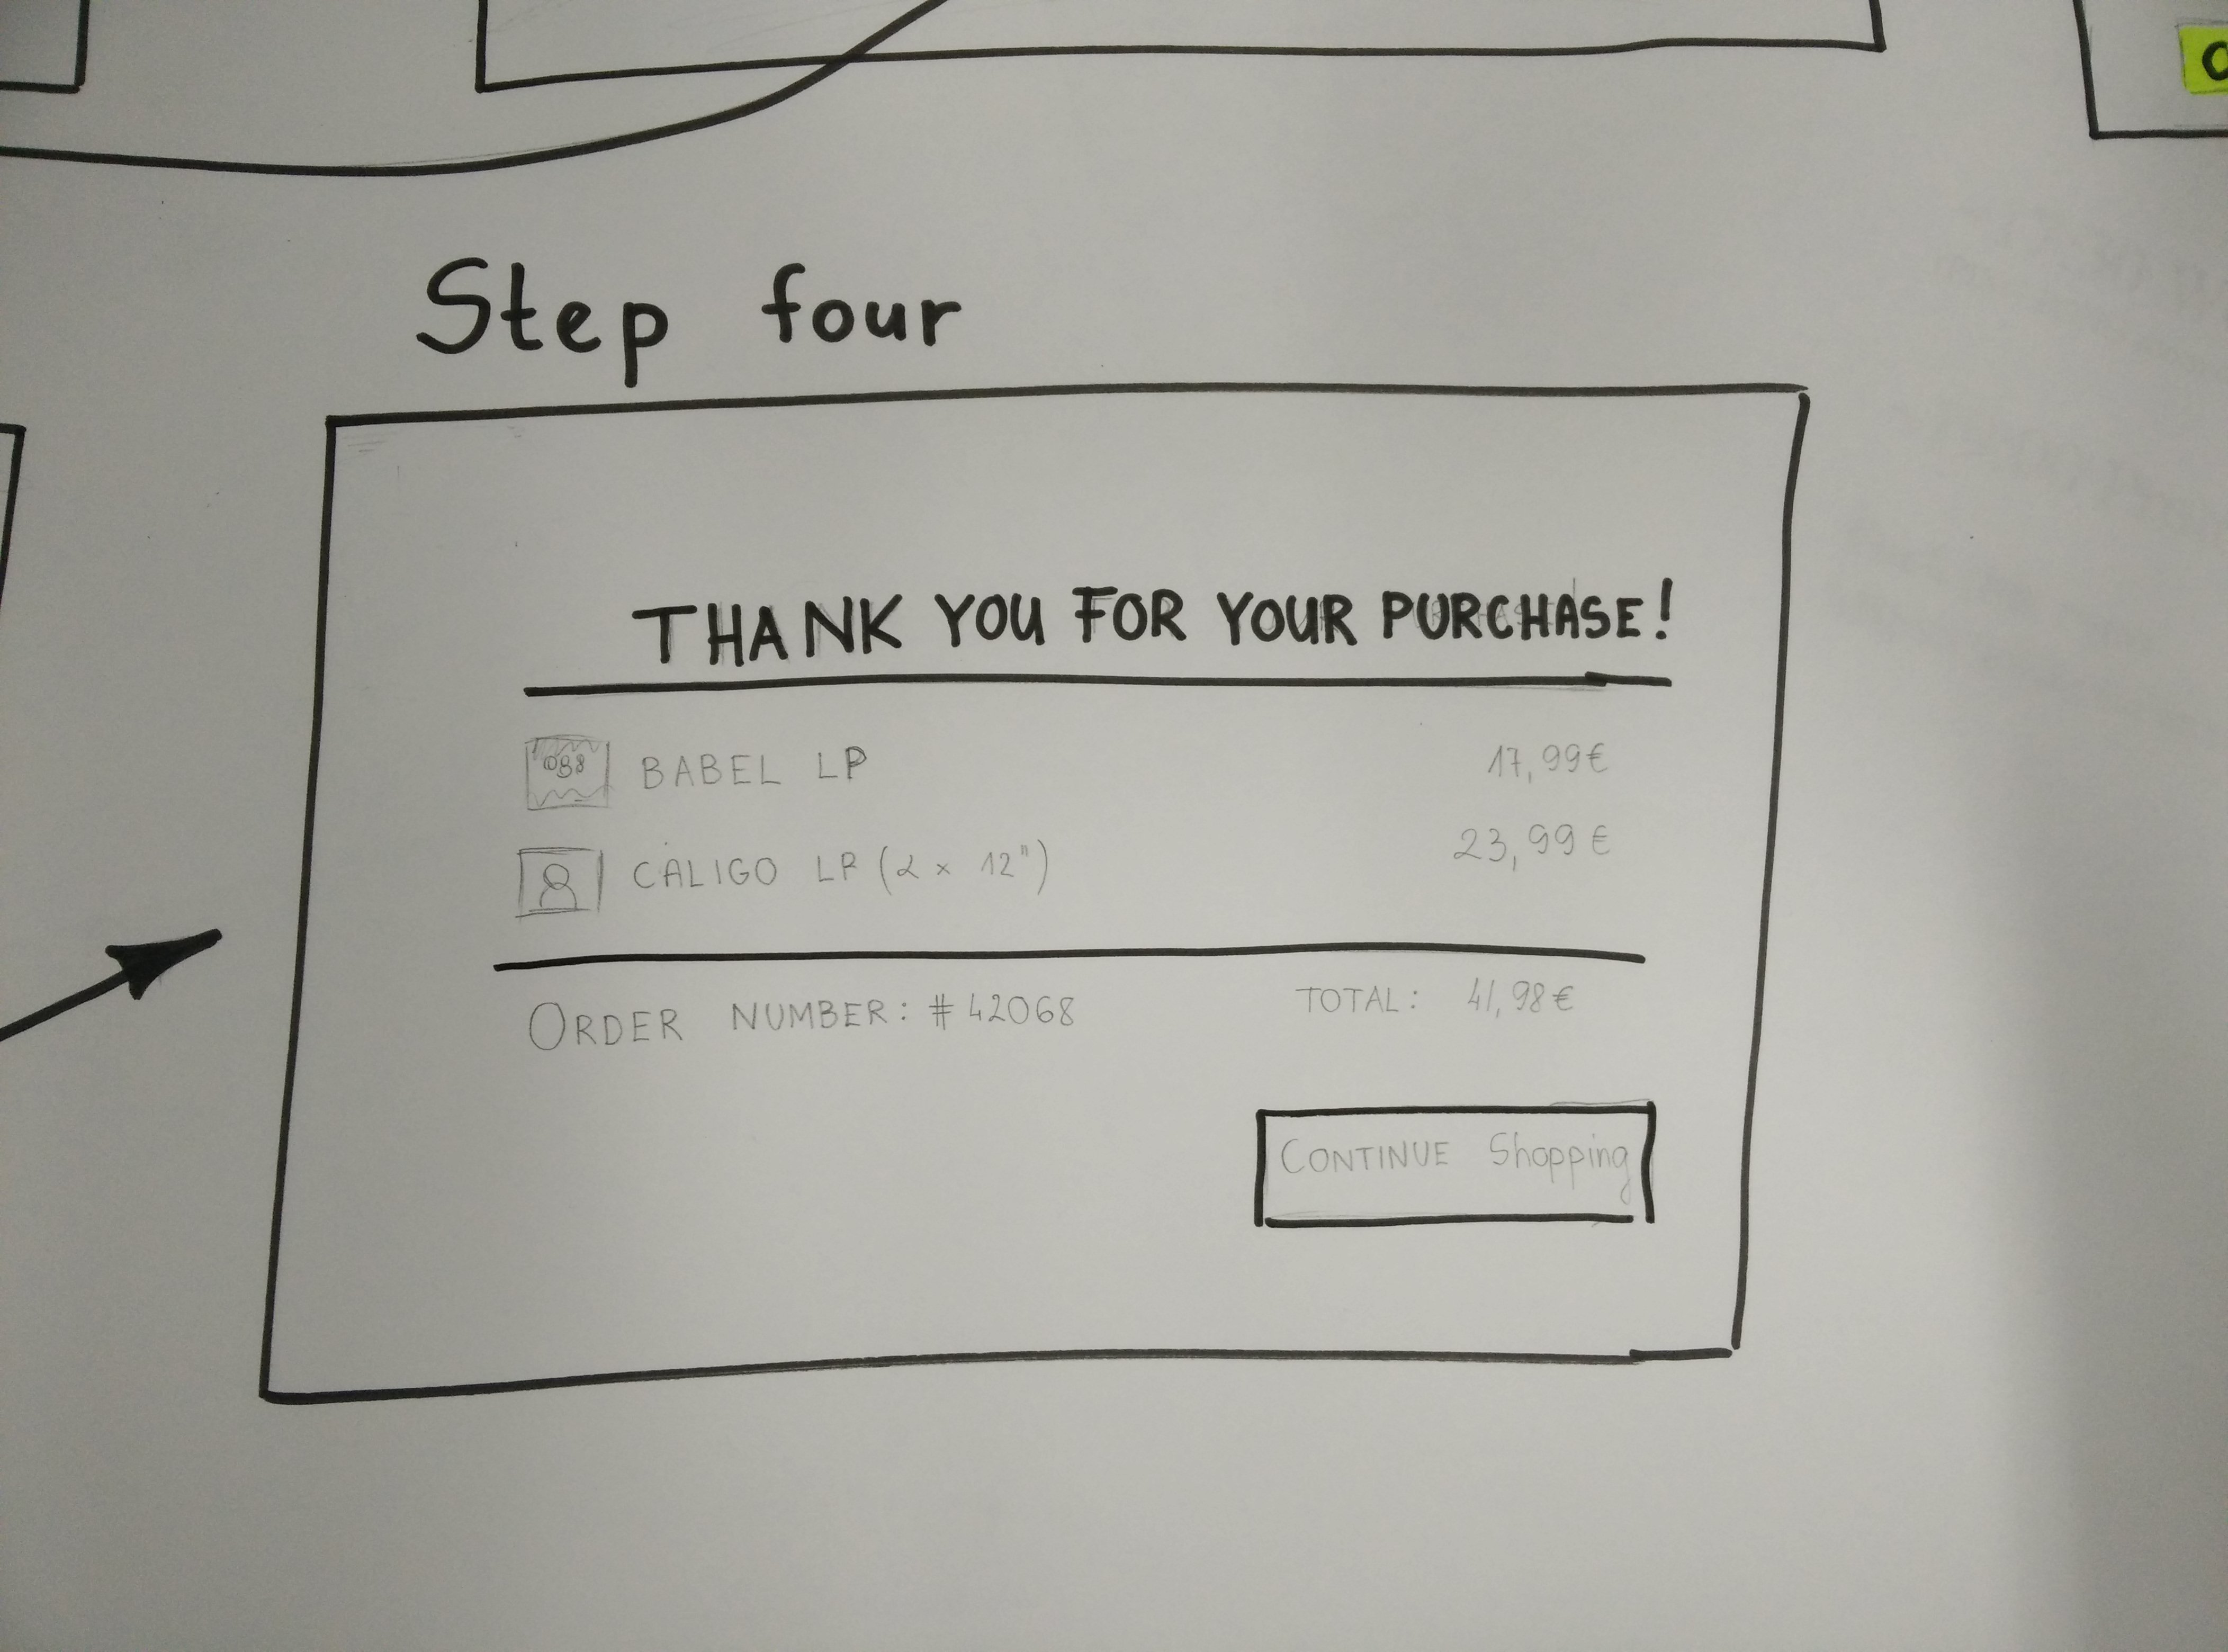 Step four
THANK YOU FOR YOUR PURCHASE!
BABEL LP 17,99€
CALIGO LP (2 × 12") 23,99€
ORDER NUMBER: #42068 TOTAL: 41,98€
CONTINUE Shopping